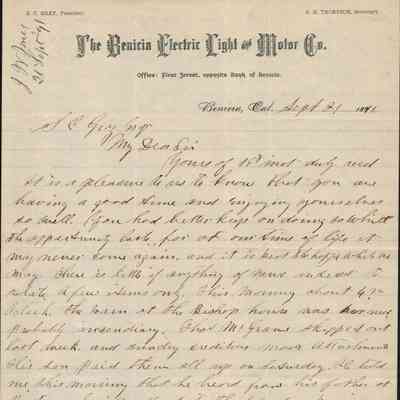 S. C. GRAY, President.
The Benicia Electric Light and Motor Co.
Office: First Street, opposite Bank of Benicia.
Benicia, Cal. Sept 21 189
S C Gray Esqr
My Dear Sir
Yours of 18 inst duly recd
it is a pleasure to us to know that you are
having a good time and enjoying yourselves
so well. You had better keep on doing so whilst
the opportunity lasts, for at our time of life it
may never come again, and it is best to be happy while we
may. There is little if anything of news indeed to
relate a few items only. This morning about 4
o'clock the barn at the Bishop house was
probably incendiary. That McGrane skipped out
last week and sundry creditors made attachments
His son paid them all up on Saturday. He told
me this morning that he heard from his father at